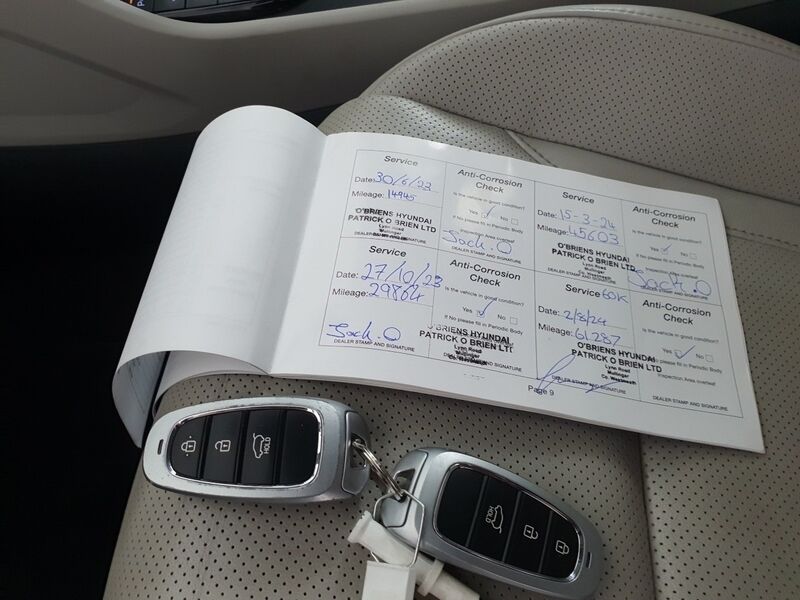 Service
Date: 30/6/23
Mileage: 14945
O'BRIENS HYUNDAI
PATRICK O BRIEN LTD
Lynn Road
Mullingar
DEALER STAMP AND SIGNATURE
Anti-Corrosion
Check
Is the vehicle in good condition?
Yes ✓ No
If No please fill in Periodic Body
Inspection Area overleaf
Jack. O
Service
Date: 15-3-24
Mileage: 45603
O'BRIENS HYUNDAI
PATRICK O BRIEN LTD
Lynn Road
Mullingar
Co. Westmeath
DEALER STAMP AND SIGNATURE
Anti-Corrosion
Check
Is the vehicle in good condition?
Yes ✓ No
If No please fill in Periodic Body
Inspection Area overleaf
Jack. O
DEALER STAMP AND SIGNATURE
Service
Date: 27/10/23
Mileage: 29864
Jack. O
DEALER STAMP AND SIGNATURE
Anti-Corrosion
Check
Is the vehicle in good condition?
Yes ✓ No
If No please fill in Periodic Body
O'BRIENS HYUNDAI
PATRICK O BRIEN LTD
Lynn Road
Mullingar
Co. Westmeath
DEALER STAMP AND SIGNATURE
Service 60K
Date: 2/8/24
Mileage: 61287
O'BRIENS HYUNDAI
PATRICK O BRIEN LTD
Lynn Road
Mullingar
Co. Westmeath
DEALER STAMP AND SIGNATURE
Anti-Corrosion
Check
Is the vehicle in good condition?
Yes ✓ No
If No please fill in Periodic Body
Inspection Area overleaf
DEALER STAMP AND SIGNATURE
Page 9
HOLD
HOLD